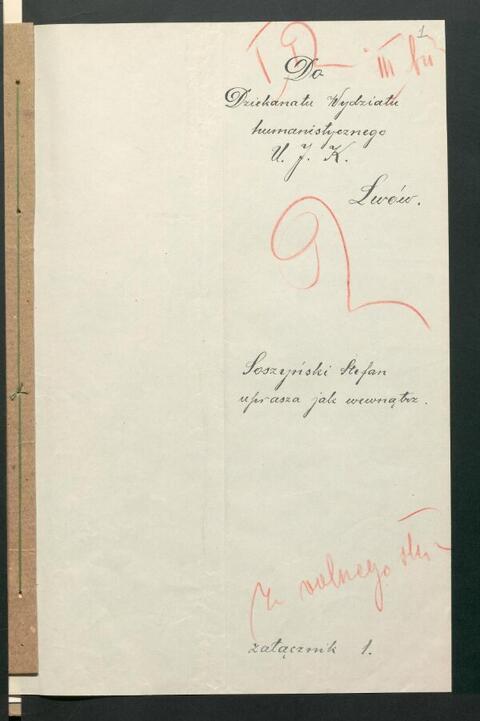 1
Do
Dziekanatu Wydziału
humanistycznego
U. J. K.
Lwów.
Soszyński Stefan
uprasza jak wewnątrz.
z wolnego
załącznik 1.